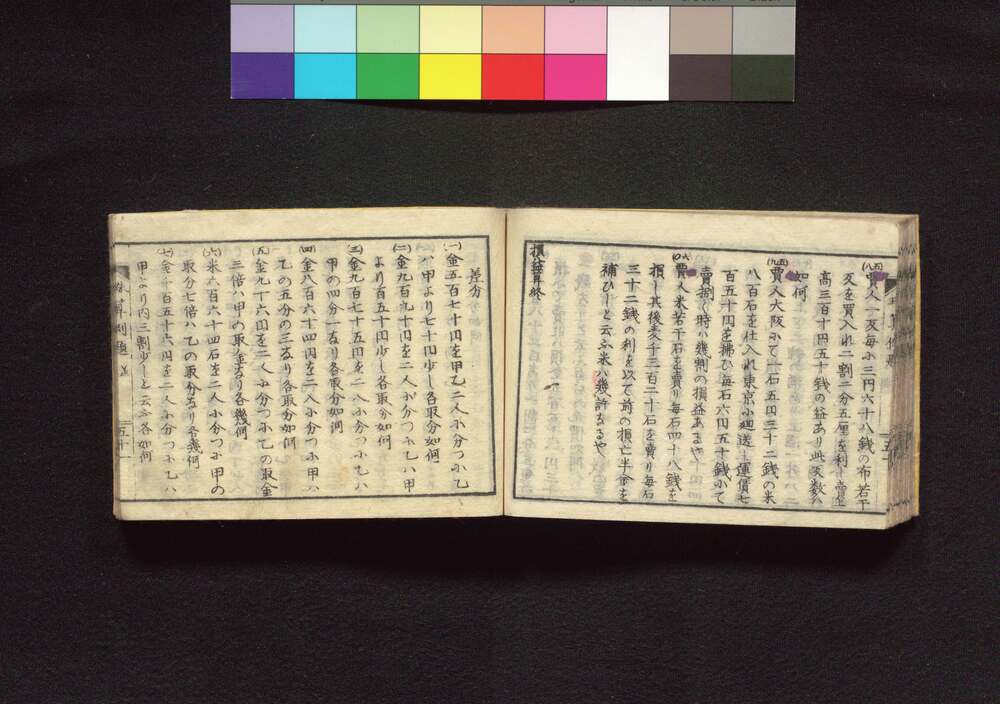 (五八)賈人一反毎ニ三円六十八銭の布若干
反を買入れ二割二分五厘を利し賣上
高三百十円五十銭の益あり此反数ハ
如何
(五九)賈人大阪ふて一石五円三十二銭の米
八百石を仕入れ東京ふ廻送し運價七
百五十円を拂ひ毎石六円五十銭ふて
賣捌く時ハ幾割の損益あるや
(六十)賈人米若干石を賣り毎石四十八銭を
損し其後麦千三百二十石を賣り毎石
三十二銭の利を以て前の損亡半金を
補ひしと云ふ米ハ幾許なるや
損益算終
差分
(一)金五百七十円を甲乙二人ふ分つふ乙
ハ甲より七十円少し各取分如何
(二)金九百九十円を二人ふ分つふ乙ハ甲
より百五十円少し各取分如何
(三)金九百七十五円を二人ふ分つふ乙ハ
甲の四分一なり各取分如何
(四)金八百六十四円を二人ふ分つふ甲ハ
乙の五分の三なり各取分如何
(五)金九十六円を二人ふ分つふ乙の取金
三倍ハ甲の取金なり各幾何
(六)米六百六十四石を二人ふ分つふ甲の
取分七倍ハ乙の取分なり各幾何
(七)金千百五十六円を二人ふ分つふ乙ハ
甲より内三割少しと云ふ各如何
五十